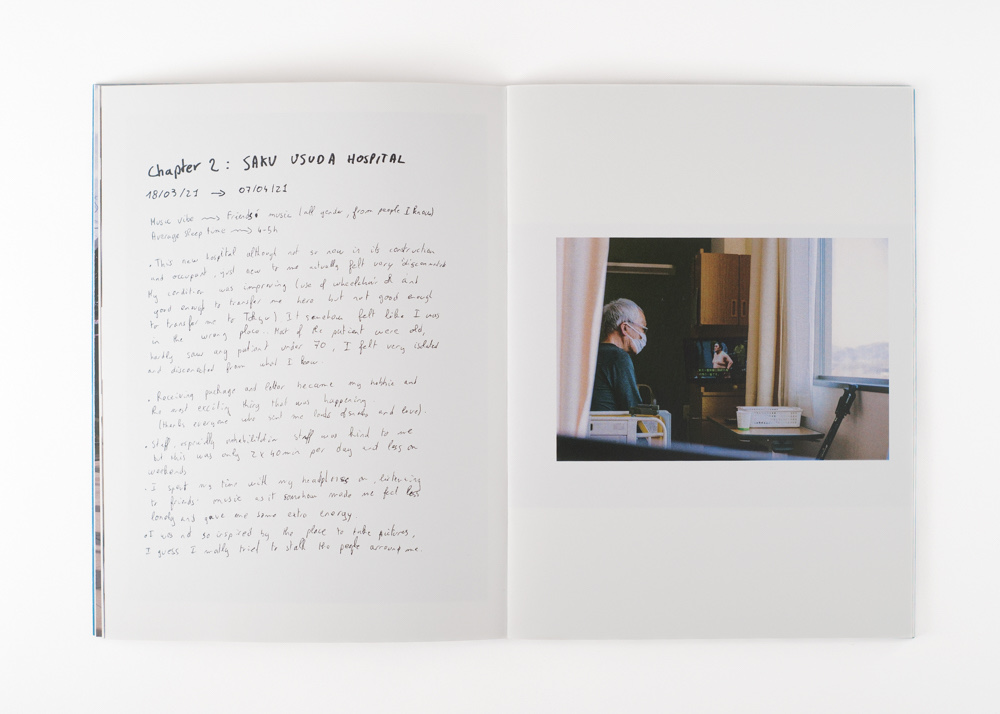 Chapter 2: SAKU USUDA HOSPITAL
18/03/21 → 07/04/21
Music vibe → Friends' music (all gender, from people I know)
Average sleep time → 4-5h
. This new hospital although not so new in its construction
and occupant, just new to me actually felt very disconnected
My condition was improving (use of wheelchair ok and
good enough to transfer me here but not good enough
to transfer me to Tokyo) It somehow felt like I was
in the wrong place. Most of the patient were old,
hardly saw any patient under 70, I felt very isolated
and disconected from what I know.
. Receiving package and letter became my hobbie and
the most exciting thing that was happening
(thanks everyone who sent me loads of snacks and love).
. Staff, especially rehabilitation staff was kind to me
but this was only 2x 40min per day and less on
weekends
. I spent my time with my headphones on, listening
to friends' music as it somehow made me feel less
lonely and gave me some extra energy
. I was not so inspired by the place to take pictures,
I guess I mostly tried to stalk the people arround me.